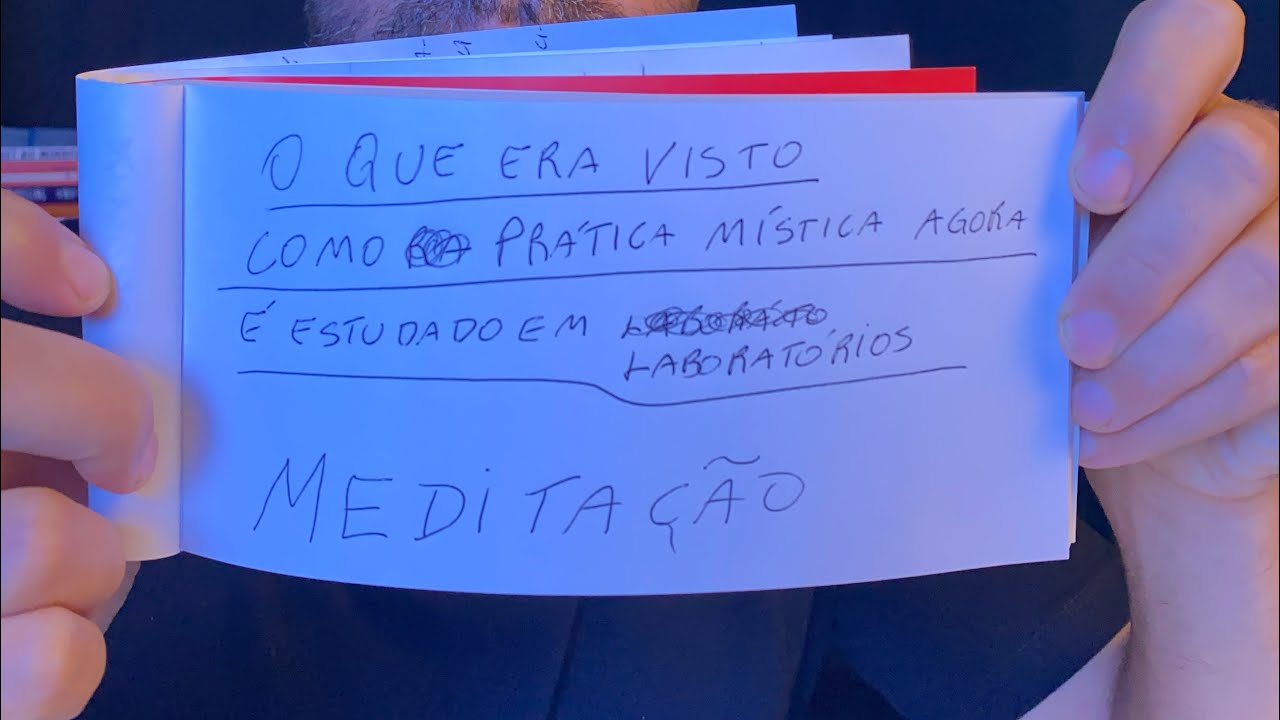 O QUE ERA VISTO
COMO PRÁTICA MÍSTICA AGORA
É ESTUDADO EM
LABORATÓRIOS
MEDITAÇÃO